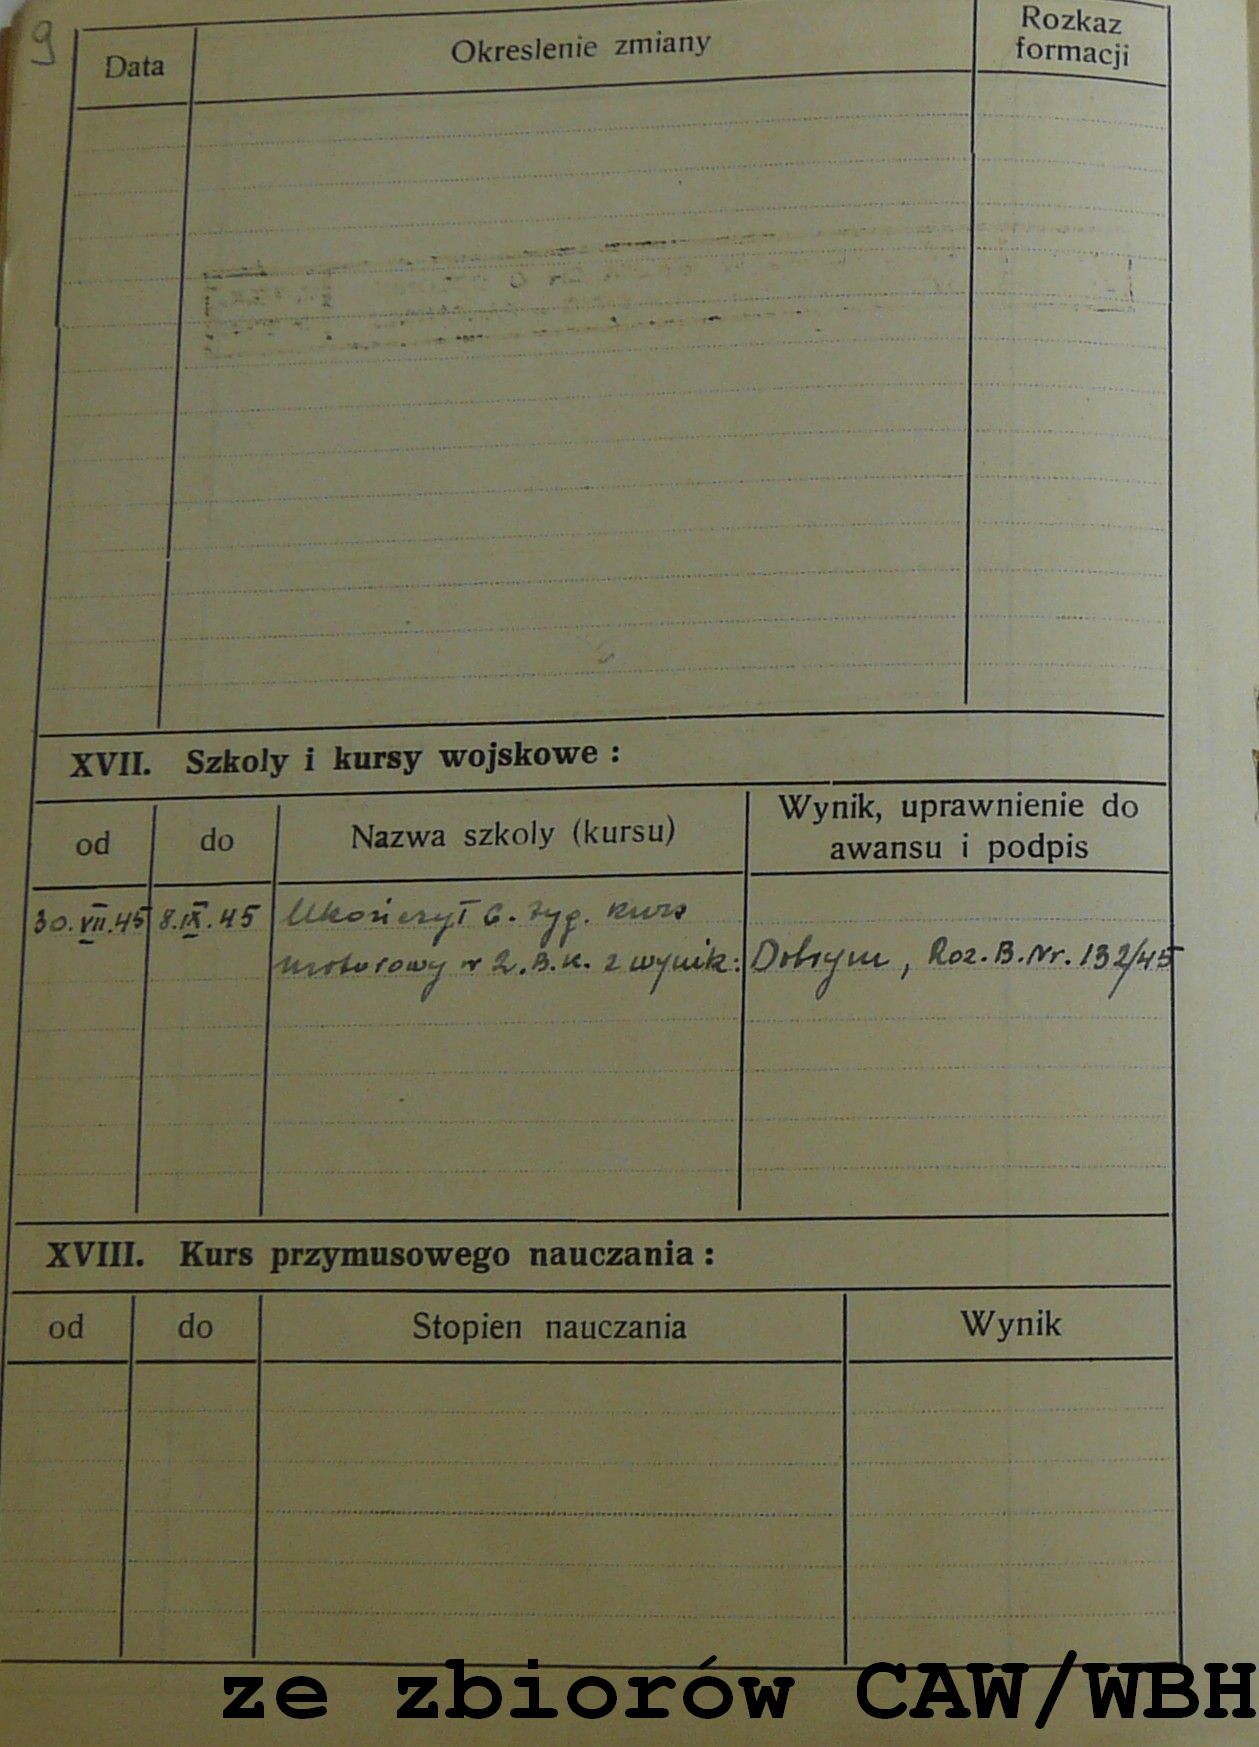 9
Data Okreslenie zmiany Rozkaz formacji
XVII. Szkoly i kursy wojskowe :
od do Nazwa szkoly (kursu) Wynik, uprawnienie do awansu i podpis
30.VII.45 8.IX.45 Ukończył 6. tyg. kurs
motorowy w 2.B.K. z wynik: Dobrym, Roz. B. Nr. 132/45
XVIII. Kurs przymusowego nauczania :
od do Stopien nauczania Wynik
ze zbiorów CAW/WBH